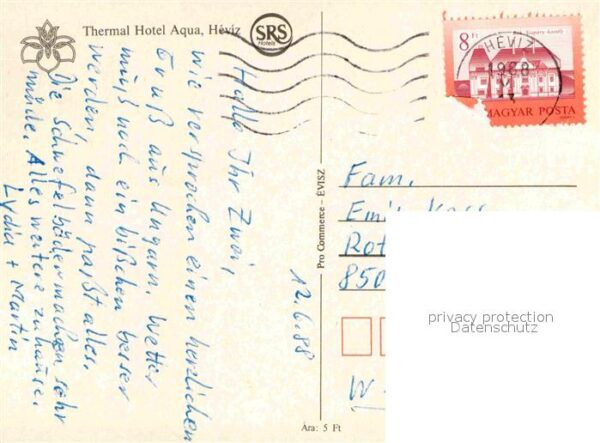 Thermal Hotel Aqua, Hévíz
SRS
Hotels
8 Ft
HÉVÍZ
1988
MAGYAR POSTA
12.6.88
Hallo Ihr Zwei,
wie versprochen einen herzlichen
Gruß aus Ungarn. Wetter
muß noch ein bißchen besser
werden, dann paßt alles.
Die Schwefelbäder machen sehr
müde. Alles weitere zuhause.
Lydia + Martin
Pro Commerce - ÉVISZ
Fam.
Rot
850
W -
Ára: 5 Ft
privacy protection
Datenschutz